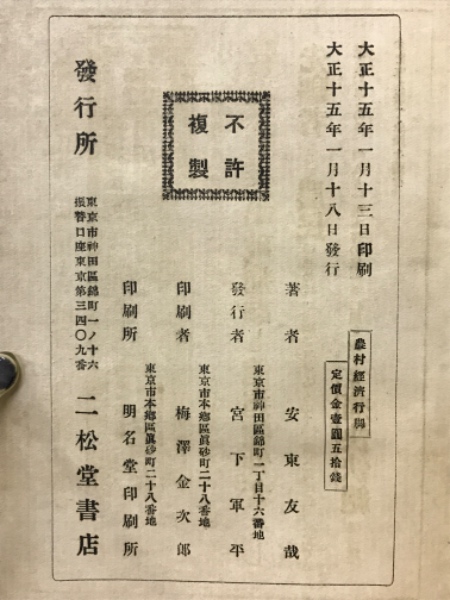 大正十五年一月十三日印刷
大正十五年一月十八日發行
農村經濟行脚
定價金壹圓五拾錢
不許
複製
著者 安東友哉
東京市神田區錦町一丁目十六番地
發行者 宮下軍平
東京市本鄕區眞砂町二十八番地
印刷者 梅澤金次郎
東京市本鄕區眞砂町二十八番地
印刷所 明名堂印刷所
發行所
東京市神田區錦町一ノ十六
振替口座東京第三四〇九番
二松堂書店